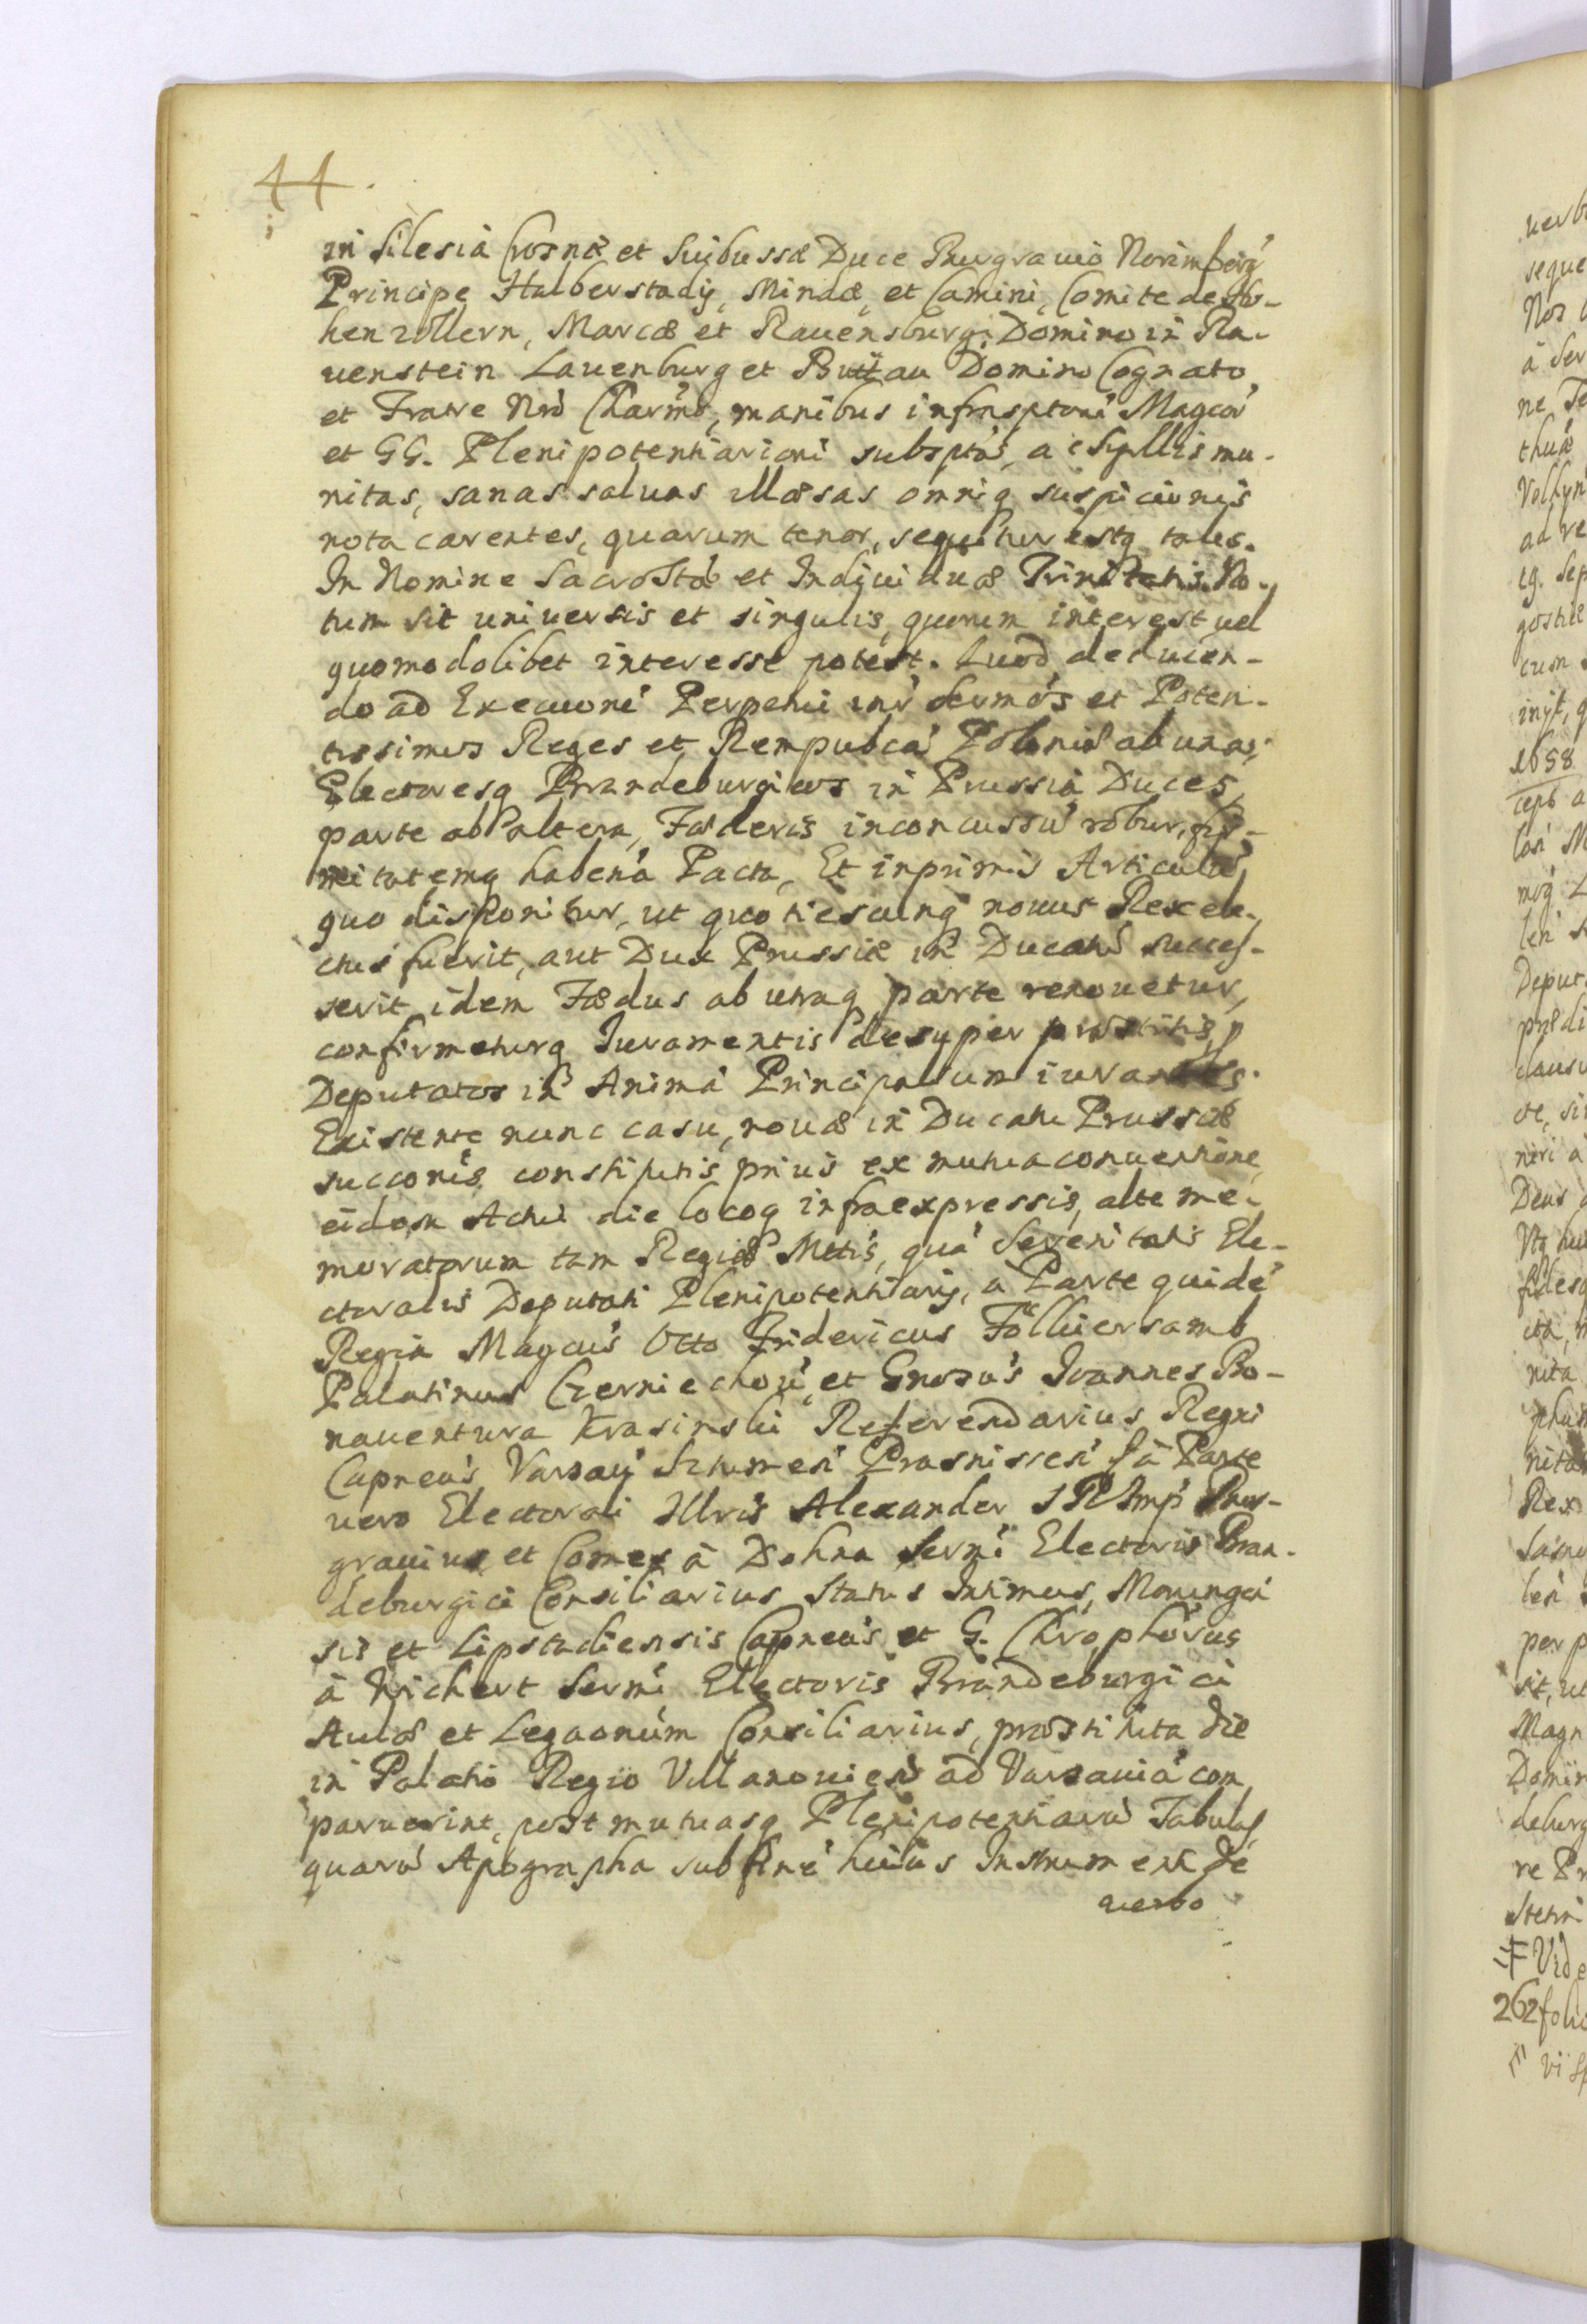 44.
in Silesia Crosnæ et Suibussæ Duce Burgrauio Norimberg
Principe Halberstadij, Mindæ, et Camini, Comite de Ho-
henzollern, Marcæ et Rauensburgi Domino in Ra-
uenstein Lauenburg et Buttau Domino Cognato
et Fratre Nrõ Charm̃o, manibus infrasptorũ Magcorũ
et GG. Plenipotentiariorũ subsptas, ac Sigillis mu-
nitas, sanas saluas illæsas omniq suspicionis
nota carentes, quarum tenor, sequitur estq talis.
In Nomine Sacrostæ et Indiuiduæ Trinitatis. No-
tum sit uniuersis et singulis, quorum interest uel
quomodolibet interesse potest. Quod deducen-
do ad Execuonẽ Perpetui intr̃ Sermos et Poten-
tissimos Reges et Rempubcã Poloniæ ab una,
Electoresq Brandeburgicos in Prussia Duces
parte ab altera, Fæderis inconcussũ robur, fir-
mitatemq habenã Pacta, Et inprimis Articulũ,
quo disponitur, ut quotiescunq nouus Rex ele-
ctus fuerit, aut Dux Prussiæ in Ducatu succes-
serit idem Fædus ab utraq parte renouetur,
confirmeturq Iuramentis desuper præstitis p
Deputatos in Animã Principalium iurantes.
Existente nunc casu, nouæ in Ducatu Prussiæ
succonis constitutis prius ex mutua conuentione
eidem Actui die locoq infraexpressis, alte me-
moratorum tam Regiæ Mttis, quã Serenitatis Ele-
ctoralis Deputati Plenipotentiarij, a Parte quidẽ
Regia Magcus Otto Fridericus Fölkiersamb
Palatinus Czerniechouĩ, et Gnosus Ioannes Bo-
nauentura Krasinski Referendarius Regni
Capneus Varsauĩ Sztumen̄ Prasnissen̄ à Parte
uero Electorali Illris Alexander S R Imp̃ Bur-
grauius et Comes à Dohna Sermi Electoris Bran-
deburgici Consiliarius Status Intimus, Morungen
sis et Lipstadiensis Capneus et G. Chrophorus
à Wichert Sermi Electoris Brandeburgici
Aulæ et Legaonum Consiliarius, præstituta die
in Palatio Regio Villanouien̄ ad Varsauiã com
paruerint, post mutuasq Plenipotentiarũ Tabulas,
quarũ Apographa sub finẽ huius Instrumenti de
uerbo